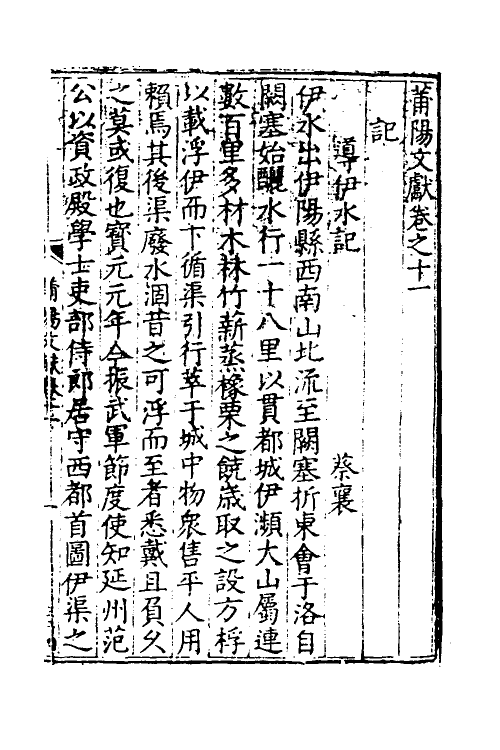 莆陽文獻卷之十一
記
導伊水記 蔡襄
伊水出伊陽縣西南山北流至闕塞折東會于洛自
闕塞始釃水行一十八里以貫都城伊瀕大山屬連
數百里多材木林竹薪蒸橡栗之饒歲取之設方桴
以載浮伊而下循渠引行萃于城中物衆售平人用
賴焉其後渠廢水涸昔之可浮而至者悉戴且負乆
之莫或復也寳元元年今振武軍節度使知延州范
公以資政殿學士吏部侍郎居守西都首圖伊渠之
莆陽文獻卷十一 一